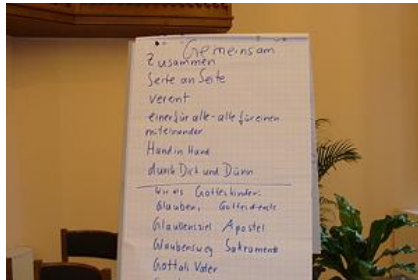 Gemeinsam
Zusammen
Seite an Seite
vereint
einer für alle - alle für einen
miteinander
Hand in Hand
durch Dick und Dünn
Wir als Gotteskinder:
Glauben, Gottesdienste
Glaubensziel Apostel
Glaubensweg Sakrament
Gott als Vater